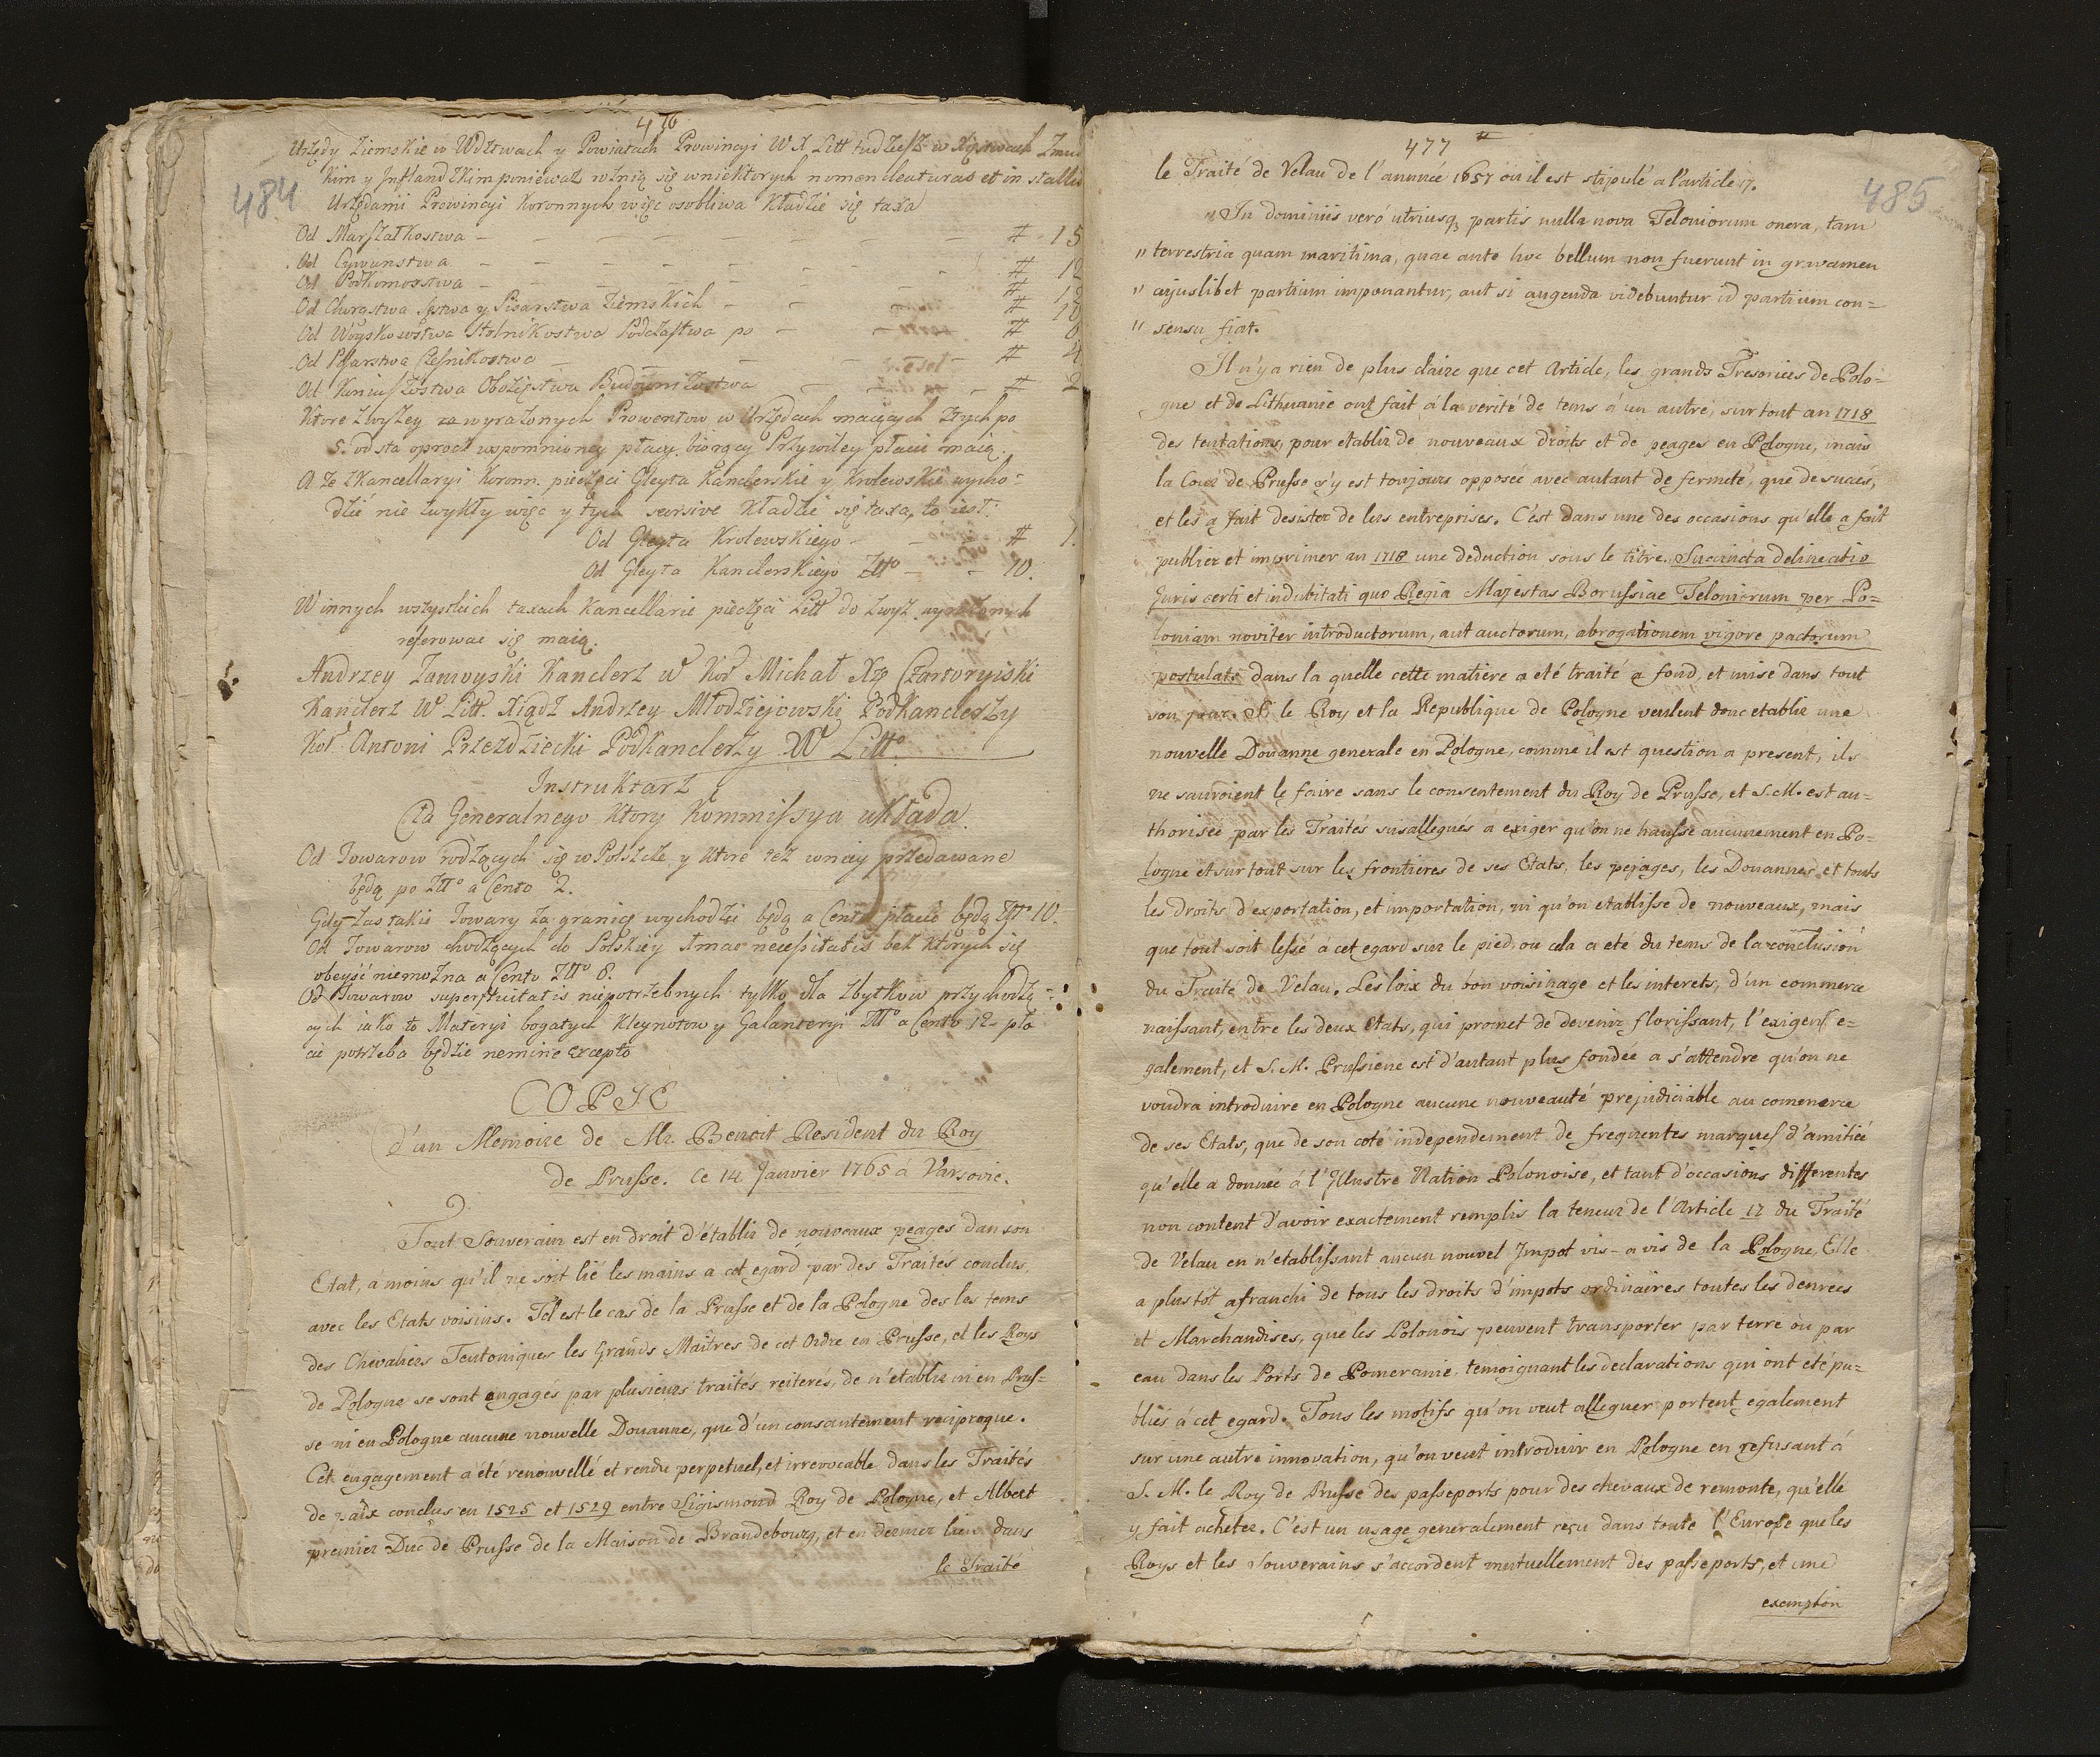 476
484
Urzędy Ziemskie w Wdztwach y Powiatach Prowincyi W X Litt tudzież w Xięstwach Żmudz
kim y Inflandzkim ponieważ rożnią się wniektorych nomenclaturas et in stallis
Urzędami Prowincyi Koronnych więc osobliwa kładzie się taxa
Od Marszałkostwa - - - - - - - - # 15
Od Cywunstwa - - - - - - - # 12
Od Podkomorstwa - - - - - - - #
Od Chorąstwa Sęstwa y Pisarstwa Ziemskich - - - # 10
Od Woyskowstwa Stolnikostwa Podczastwa po - - # 6
Od Pisarstwa Cześnikostwa - - - - # 4
Od Koniuszostwa Oboźięstwa Budowniczostwa - - - # 2
Ktore zwyszey zawyrażonych Prowentow w Urzędach maiących złych po
5. od sta oprocz wspomnioney płacy biorący Przywiley płacić maią.
A że z Kancellaryi Koronn. pieczęci Gleyta Kanclerskie y Krolewskie wycho-
dzić nie zwykły więc y tych seorsive kładzie się taxa, to iest:
Od Gleyta Krolewskiego - - # 1.
Od Gleyta Kanclerskiego Złł° - - 10.
W innych wszystkich taxach Kancellarie pieczęci Litt do zwyż wyrażonych
referować się maią.
Andrzey Zamoyski Kanclerz W Kor Michał Xże Czartoryiski
Kanclerz W Litt. Xiądz Andrzey Młodziejowski Podkanclerzy
Kor. Antoni Przezdziecki Podkanclerzy W Litt°
Instruktarz
Cła Generalnego Ktory Kommissya układa.
Od Towarow rodzących się w Polszcze y ktore też wniey przedawane
będą po Złł° a Cento 2.
Gdy zas takie Towary za granicę wychodzić będą a Cento płacić będą Złł° 10.
Od Towarow chodzących do Polskiey necessitatis bez których się
obeyść niemożna a Cento Złł° 6.
Od Towarow superfluitatis niepotrzebnych tylko dla zbytkow przychodzą-
cych iako to Materyi bogatych Kleynotow y Galanteryi Złł° a Cento 12 pła
cić potrzeba będzie nemine excepto
COPIE
d'un Memoire de Mr. Benoit Resident du Roy
de Prusse. Ce 14 Janvier 1765 á Varsovie.
Tout Souverain est en droit d'établir de nouveaux peages dan son
Etat, á moins qu'il ne soit lié les mains a cet egard par des Traités conclus
avec les Etats voisins. Tel est le cas de la Prusse et de la Pologne des les tems
des Chevaliers Teutoniques les Grands Maitres de cet Ordre en Prusse, et les Roys
de Pologne se sont engagés par plusieurs traités reiterés, de n'etablir ni en Prus-
se ni en Pologne aucune nouvelle Douanne, que d'un consantement reciproque.
Cet engagement a été renouvellé et rendu perpetuel, et irrevocable dans les Traités
de paix conclus en 1525 et 1529 entre Sigismond Roy de Pologne, et Albert
premier Duc de Prusse de la Maison de Brandebourg, et en dernier lieu dans
le Traité
477
485
le Traité de Velau de l'annueé 1657 oú il est stipulé a l'article 17.
" In dominiis veró utriusq; partis nulla nova Teloniorum onera, tam
" terrestria quam maritima, quae ante hoc bellum non fuerunt in gravamen
" cujuslibet partium imponantur, aut si augenda videbuntur id partium con-
" sensu fiat.
Il n'y a rien de plus claire que cet Article, les grands Tresoriers de Polo-
gne et de Lithuanie ont fait á la verité de tems á un autre, sur tout an 1718
des tentations, pour etablir de nouveaux droits et de peages en Pologne, mais
la Cour de Prusse s'y est toujours opposée avec autant de fermeté, que de succés,
et les a fait desister de lurs entreprises. C'est dans une des occasions qu'elle a fait
publier et imprimer an 1718 une deduction sous le titre. Succincta delineatio
Juris certi et indubitati quo Regia Majestas Borussiae Teloniorum per Po-
loniam noviter introductorum, aut auctorum, abrogationem vigore pactorum
postulat: dans la quelle cette matiere a eté traité a fond, et mise dans tout
son jour. Si le Roy et la Republique de Pologne veulent donc etablir une
nouvelle Douanne generale en Pologne, comme il est question a present, ils
ne sauroient le faire sans le consentement du Roy de Prusse, et S. M. est au-
thorisée par les Traités susallegués a exiger qu'on ne hausse aucunement en Po-
logne et sur tout sur les frontieres de ses Etats, les pejages, les Douannes et touts
les droits d'exportation, et importation, ni qu'on etablisse de nouveaux, mais
que tout soit lessé a cet egard sur le pied, ou cela a eté du tems de la conclusion
du Traité de Velau. Les loix du bon voisinage et les interets, d'un commerce
naissant, entre les deux Etats, qui promet de devenir florissant, l'exigent e-
galement, et S. M. Prussiene est d'autant plus fondée a s'attendre qu'on ne
voudra introduire en Pologne aucune nouveauté prejudiciable au comerce
de ses Etats, que de son coté independement de frequentes marques d'amitié
qu'elle a donneé á l'Illustre Nation Polonoise, et tant d'occasions differentes
non content d'avoir exactement remplis la teneur de l'Article 17 du Traité
de Velau en n'etablissant aucun nouvel Impot vis-a vis de la Pologne, Elle
a plustôt afranchi de tous les droits d'impots ordinaires toutes les denrees
et Marchandises, que les Polonois peuvent transporter par terre ou par
eau dans les Ports de Pomeranie, temoignant les declarations qui ont eté pu-
bliés á cet egard. Tous les motifs qu'on veut alleguer portent egalement
sur une autre innovation, qu'on veut introduir en Pologne en refusant á
S. M. le Roy de Prusse des passeports pour des chevaux de remonte, qu'elle
y fait acheter. C'est un usage generalement reçu dans toute l'Europe que les
Roys et les Souverains s'accordent mutuellement des passeports, et une
exemption